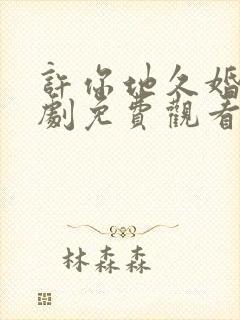 許你地久婚
劇免費觀看
林森森